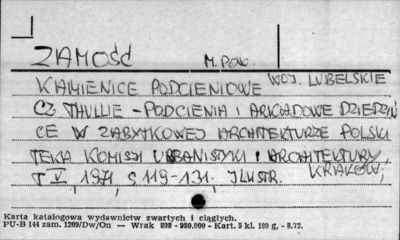 ZAMOŚĆ M. POW.
KAMIENICE PODCIENIOWE WOJ. LUBELSKIE
CZ THULLIE - PODCIENIA I ARKADOWE DZIEDZIŃ
CE W ZABYTKOWEJ ARCHITEKTURZE POLSKI
TEKA KOMISJI URBANISTYKI I ARCHITEKTURY,
T V, 1971, S 119-131. ILUSTR. KRAKÓW,
Karta katalogowa wydawnictw zwartych i ciągłych.
PU-B 144 zam. 1209/Dw/On — Wrak 898 - 950.000 - Kart. 5 kl. 180 g, - 8.72.